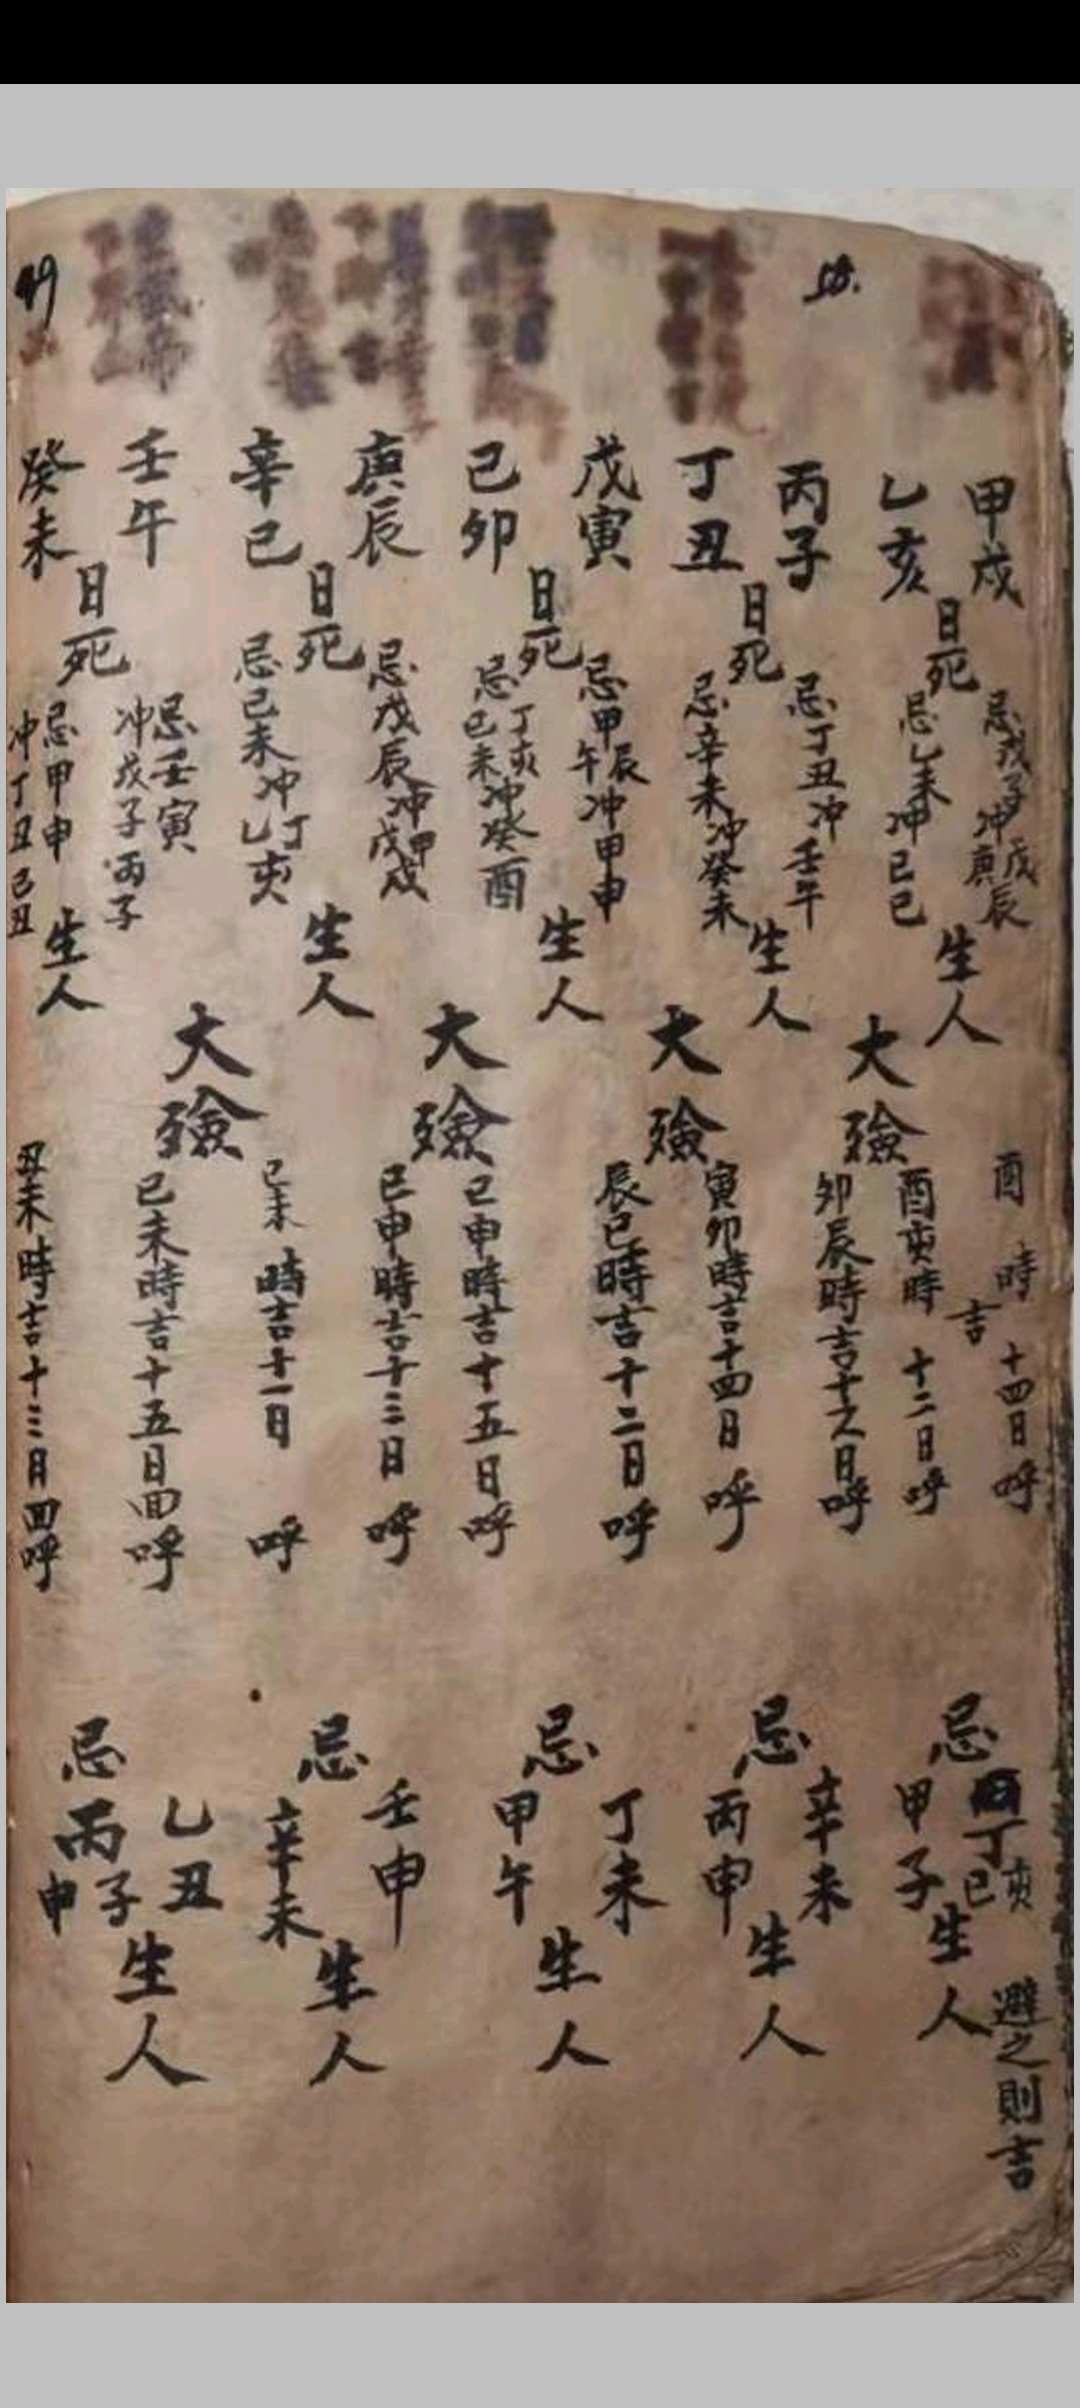 甲戌
乙亥
日死
忌戊子冲戊辰庚
忌乙未冲己巳
生人
丙子
丁丑
日死
忌丁丑冲壬午
忌辛未冲癸未
生人
戊寅
己卯
日死
忌甲辰午冲甲申
忌丁亥己未冲癸酉
生人
庚辰
辛巳
日死
忌戊辰冲甲戊戌
忌己未冲丁乙亥
生人
壬午
癸未
日死
忌壬寅
冲戊子丙子
忌甲申
冲丁丑己丑
生人
大殮
酉時吉十四日呼
酉亥時十二日呼
大殮
卯辰時吉十六日呼
寅卯時吉十四日呼
大殮
辰巳時吉十二日呼
巳申時吉十五日呼
大殮
巳申時吉十二日呼
巳未時吉十一日呼
巳未時吉十五日回呼
丑未時吉十三日回呼
忌
丁亥巳
甲子
生人
避之則吉
忌
辛未
丙申
生人
忌
丁未
甲午
生人
忌
壬申
辛未
生人
忌
乙丑
丙子申
生人